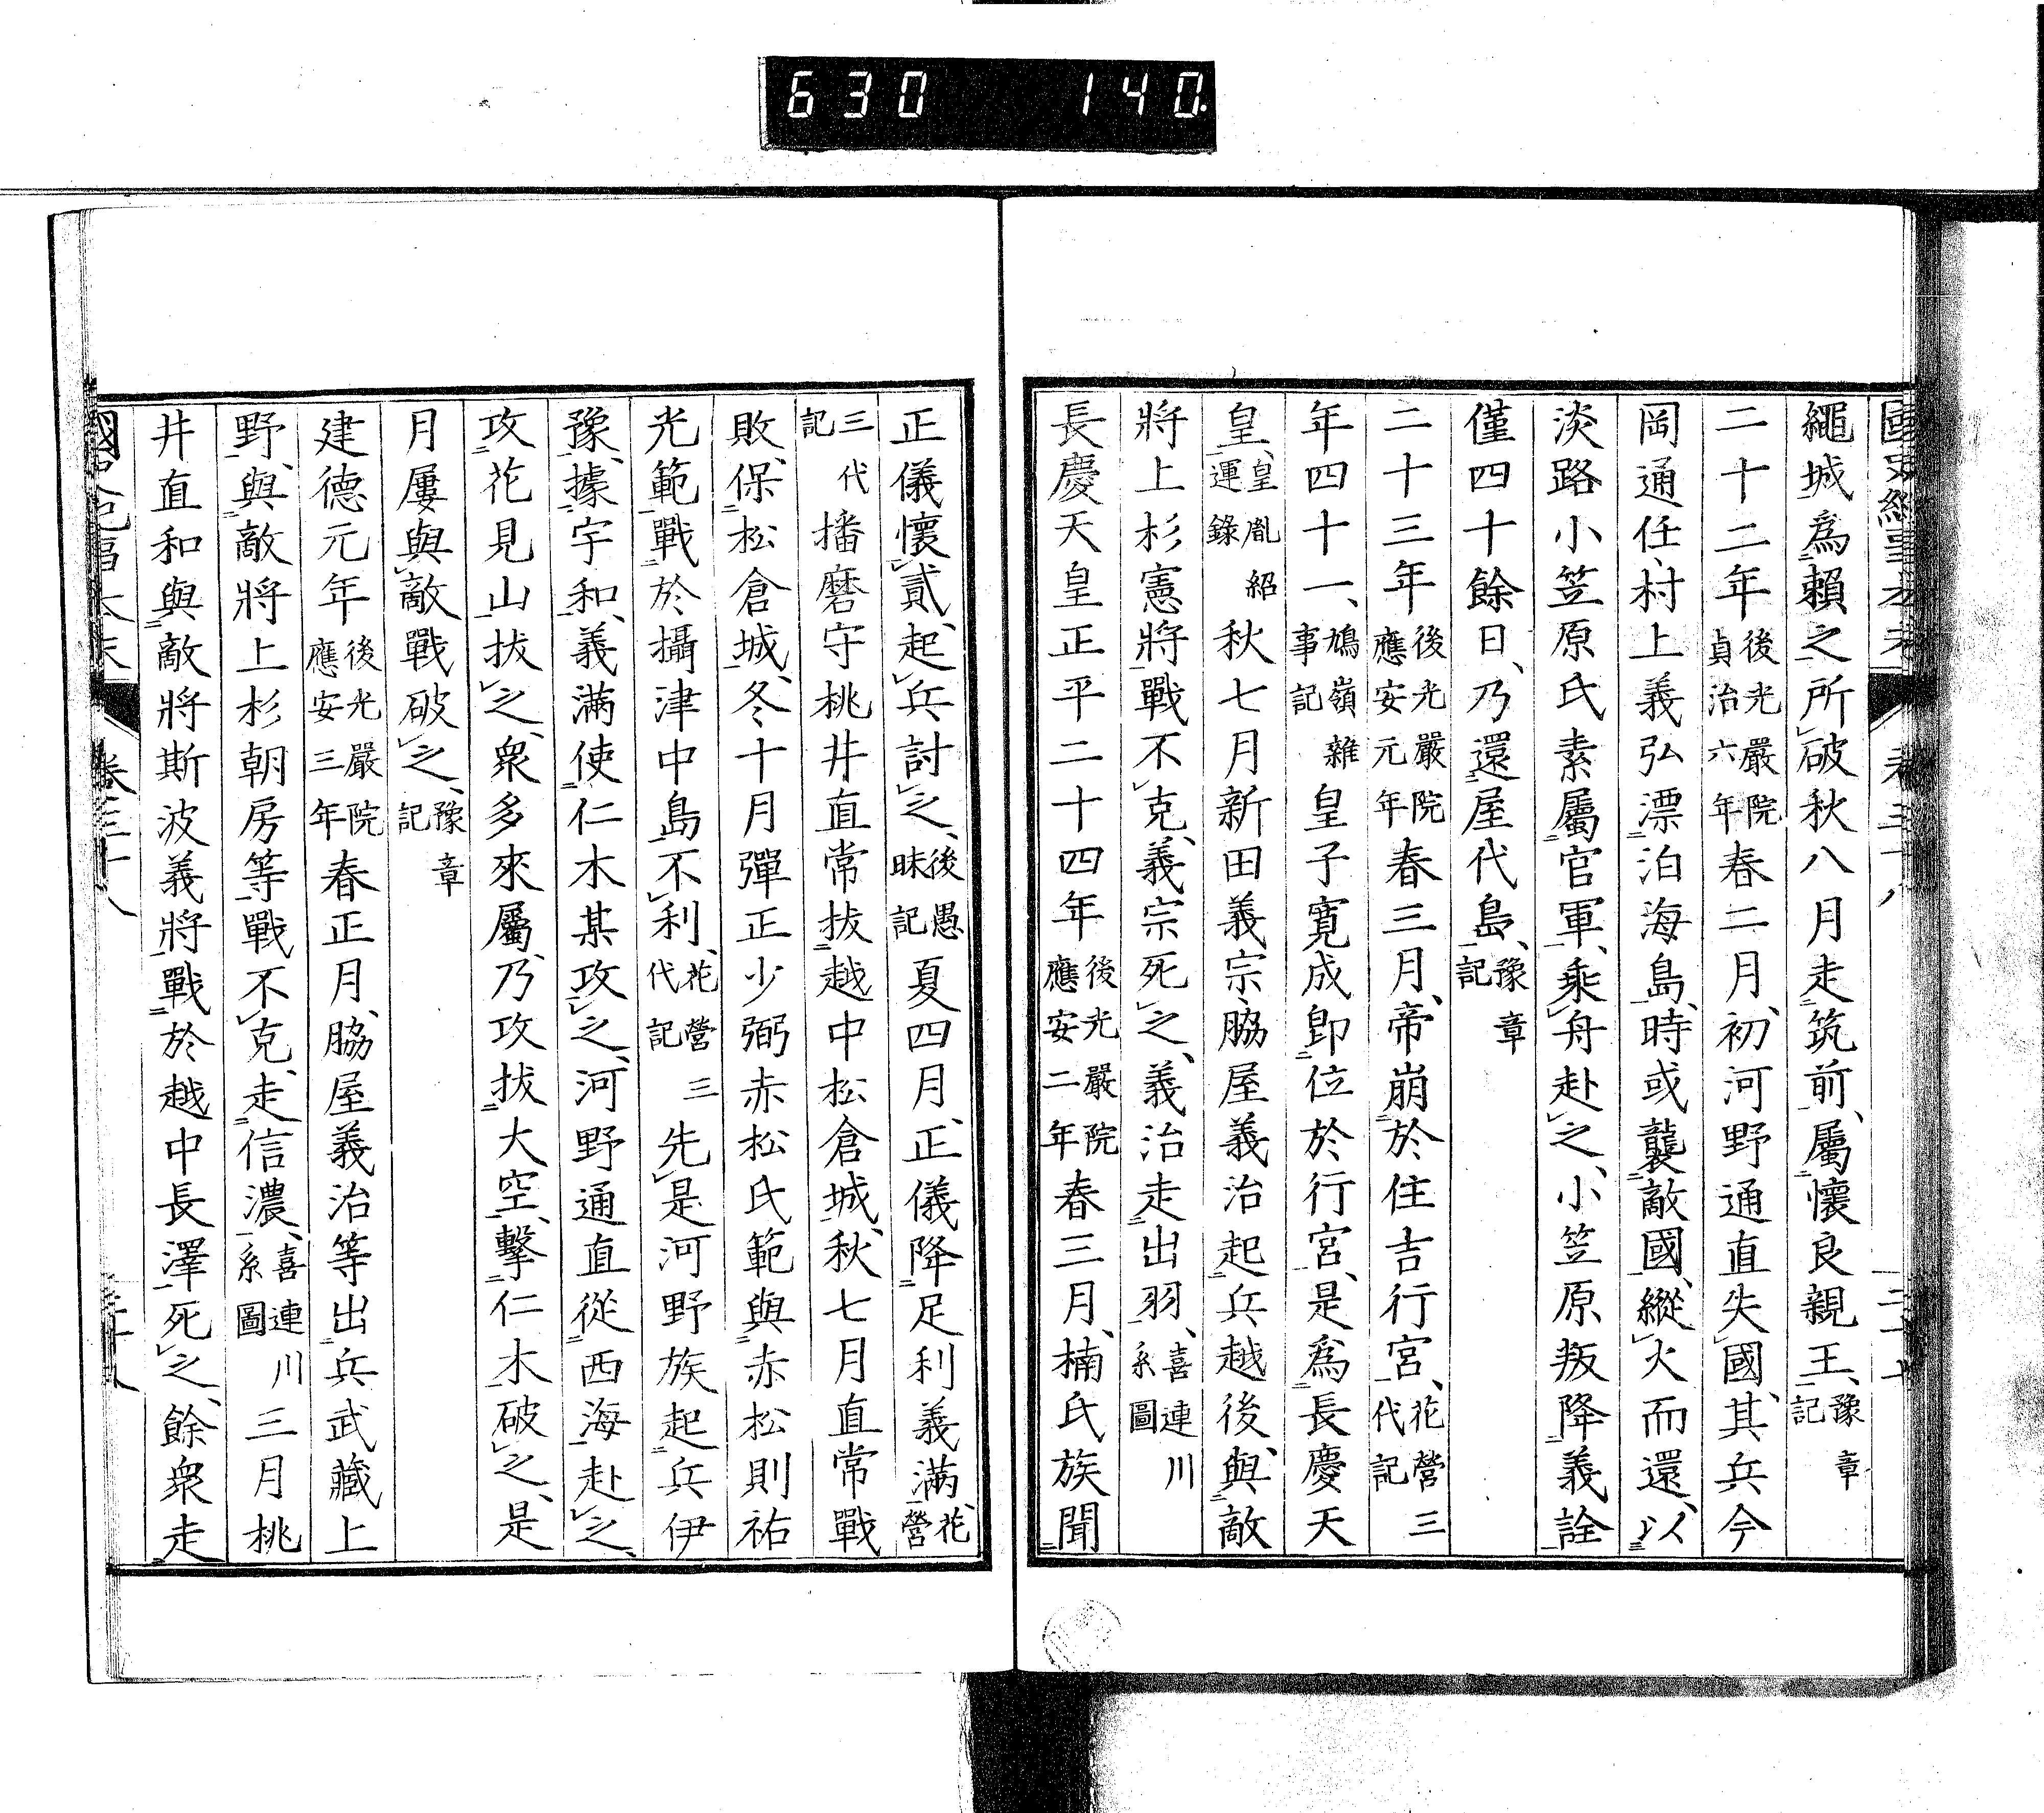 630 140.
國史紀事本末 卷三十八 二十七
繩城爲賴之所破秋八月走筑前、屬懷良親王、豫章記
二十二年後光嚴院貞治六年春二月、初河野通直失國、其兵今
岡通任、村上義弘漂泊海島、時或襲敵國、縱火而還、以
淡路小笠原氏素屬官軍、乘舟赴之、小笠原叛降義詮
僅四十餘日、乃還屋代島、豫章記
二十三年後光嚴院應安元年春三月、帝崩於住吉行宮、花營三代記
年四十一、鳩嶺雜事記皇子寬成卽位於行宮、是爲長慶天
皇、皇胤紹運錄秋七月新田義宗、脇屋義治起兵越後、與敵
將上杉憲將戰不克、義宗死之、義治走出羽、喜連川系圖
長慶天皇正平二十四年後光嚴院應安二年春三月、楠氏族聞
正儀懷貳、起兵討之、後愚昧記夏四月、正儀降足利義滿、花營
三代記播磨守桃井直常拔越中松倉城、秋七月直常戰
敗、保松倉城、冬十月彈正少弼赤松氏範與赤松則祐
光範戰於攝津中島不利、花營三代記先是河野族起兵伊
豫、據宇和、義滿使仁木某攻之、河野通直從西海赴之、
攻花見山拔之、衆多來屬、乃攻拔大空、擊仁木破之、是
月屢與敵戰破之、豫章記
建德元年後光嚴院應安三年春正月、脇屋義治等出兵武藏上
野、與敵將上杉朝房等戰不克、走信濃、喜連川系圖三月桃
井直和與敵將斯波義將戰於越中長澤死之、餘衆走
國史紀事本末 卷三十八 二十八